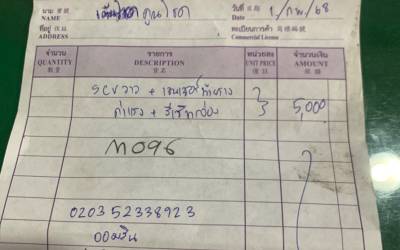 นาม 寶號 วันที่ 日期 1/กพ/68
NAME คูนโชค Date
ที่อยู่ 住址 ทะเบียนการค้า 商標編號
ADDRESS Commercial License
จำนวน รายการ หน่วยละ จำนวนเงิน
QUANTITY DESCRIPTION UNIT PRICE AMOUNT
數量 貨名 價目 銀額
SCV วาว + เซนเซอร์
ค่าแรง + รีเซ็ทกล่อง 5,000
M096
020352338923
ออมสิน